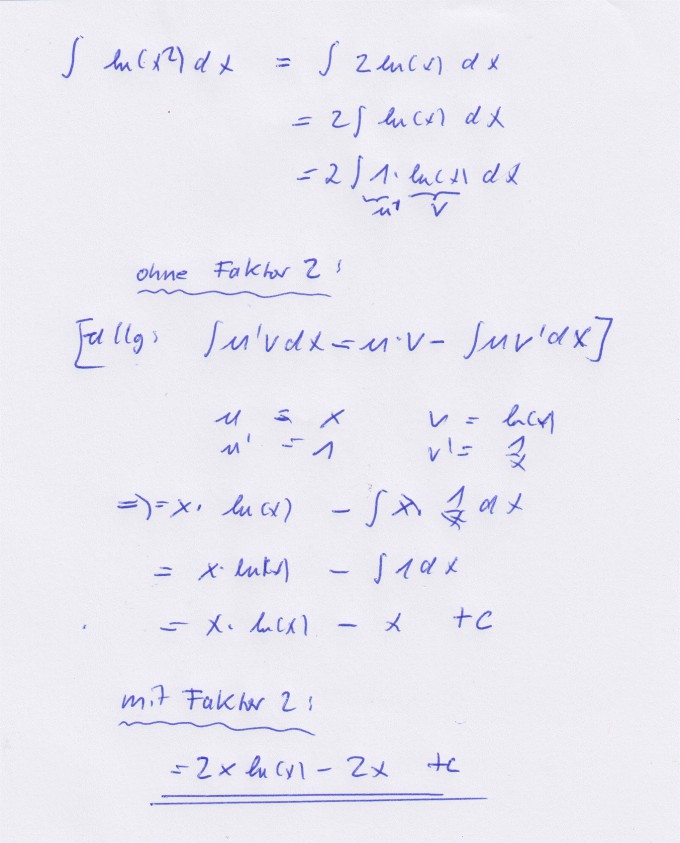 ∫ ln(x²) dx = ∫ 2 ln(x) dx
= 2 ∫ ln(x) dx
= 2 ∫ 1 · ln(x) dx
u' v
ohne Faktor 2:
[allg: ∫ u'v dx = u·v - ∫ u v' dx]
u = x v = ln(x)
u' = 1 v' = 1/x
=> = x · ln(x) - ∫ x · 1/x dx
= x · ln(x) - ∫ 1 dx
= x · ln(x) - x + c
mit Faktor 2:
= 2x ln(x) - 2x + c